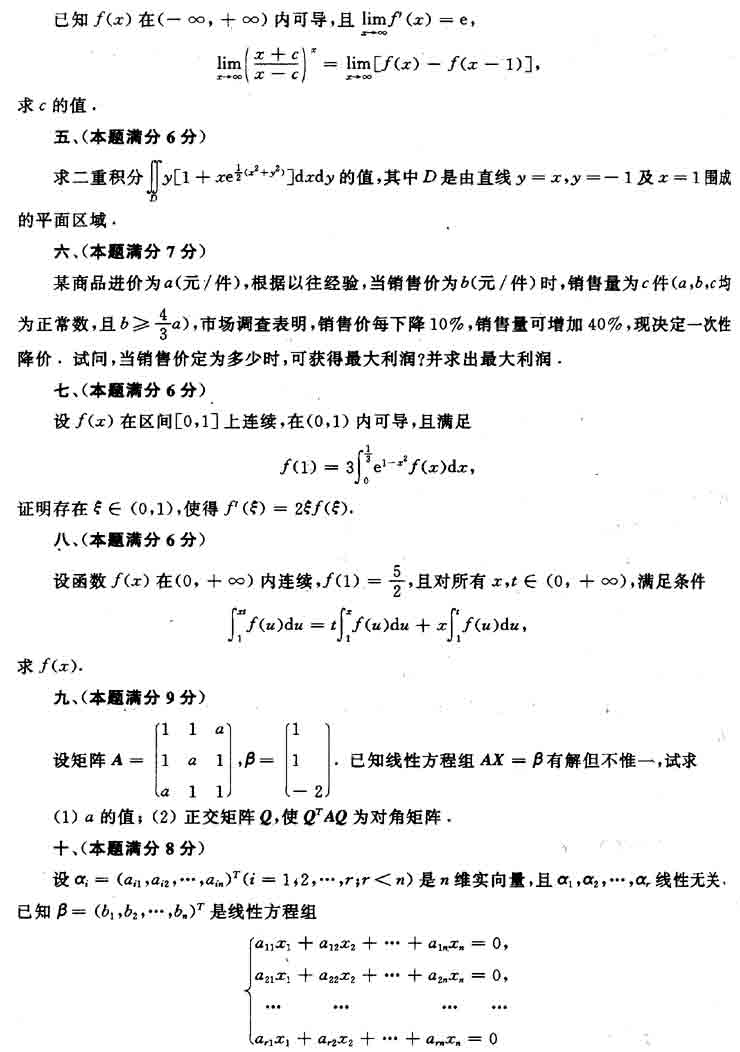 已知 f(x) 在(-∞, +∞) 内可导,且 lim_{x→∞} f′(x) = e,
lim_{x→∞} ((x + c)/(x - c))^x = lim_{x→∞} [f(x) - f(x - 1)],
求 c 的值.
五、(本题满分 6 分)
求二重积分 ∬_D y[1 + xe^{½(x²+y²)}]dxdy 的值,其中 D 是由直线 y = x, y = -1 及 x = 1 围成
的平面区域.
六、(本题满分 7 分)
某商品进价为 a(元/件),根据以往经验,当销售价为 b(元/件) 时,销售量为 c 件(a,b,c均
为正常数,且 b ≥ 4/3 a),市场调查表明,销售价每下降 10%,销售量可增加 40%,现决定一次性
降价. 试问,当销售价定为多少时,可获得最大利润?并求出最大利润.
七、(本题满分 6 分)
设 f(x) 在区间[0,1] 上连续,在(0,1) 内可导,且满足
f(1) = 3∫_0^{1/3} e^{1-x²} f(x)dx,
证明存在 ξ ∈ (0,1),使得 f′(ξ) = 2ξf(ξ).
八、(本题满分 6 分)
设函数 f(x) 在(0, +∞) 内连续,f(1) = 5/2,且对所有 x,t ∈ (0, +∞),满足条件
∫_1^{xt} f(u)du = t∫_1^x f(u)du + x∫_1^t f(u)du,
求 f(x).
九、(本题满分 9 分)
设矩阵 A = (1 1 a; 1 a 1; a 1 1), β = (1; 1; -2). 已知线性方程组 AX = β 有解但不惟一,试求
(1) a 的值; (2) 正交矩阵 Q,使 QᵀAQ 为对角矩阵.
十、(本题满分 8 分)
设 αᵢ = (aᵢ₁,aᵢ₂,⋯,aᵢₙ)ᵀ(i = 1,2,⋯,r;r < n) 是 n 维实向量,且 α₁,α₂,⋯,αᵣ 线性无关.
已知 β = (b₁,b₂,⋯,bₙ)ᵀ 是线性方程组
a₁₁x₁ + a₁₂x₂ + ⋯ + a₁ₙxₙ = 0,
a₂₁x₁ + a₂₂x₂ + ⋯ + a₂ₙxₙ = 0,
⋯ ⋯ ⋯ ⋯
aᵣ₁x₁ + aᵣ₂x₂ + ⋯ + aᵣₙxₙ = 0